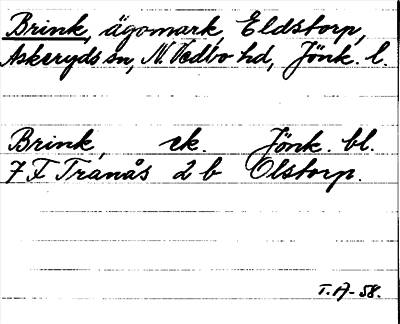 Brink, ägomark, Eldstorp,
Askeryds sn, N. Vedbo hd, Jönk. l.
Brink, ek. Jönk. bl.
7 F Tranås 2 b Olstorp.
T.A-58.